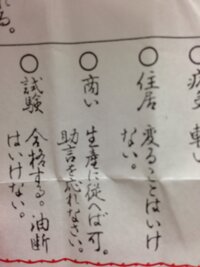 ○ 住居 変ることはいけ
ない。
○ 商い 生産に従へば可。
助言を容れなさい。
○ 試験 合格する。油断
はいけない。
れる。